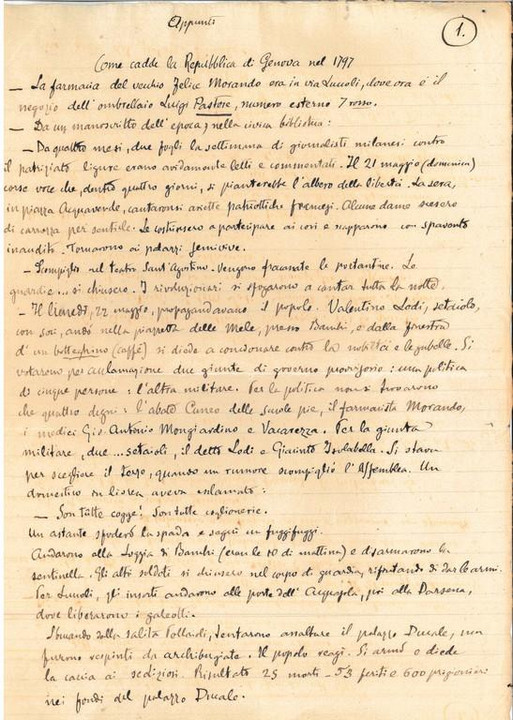 Appunti
1.
Come cadde la Repubblica di Genova nel 1797
— La farmacia del vecchio Felice Morando era in via Luccoli, dove ora è il
negozio dell'ombrellaio Luigi Pastore, numero esterno 7 rosso.
— Da un manoscritto dell'epoca, nella civica biblioteca:
— Da quattro mesi, due fogli la settimana di giornalisti milanesi contro
il patriziato ligure erano avidamente letti e commentati. Il 21 maggio (domenica)
corse voce che, dentro quattro giorni, si pianterebbe l'albero della libertà. La sera,
in piazza Acquaverde, cantaronsi ariette patriottiche francesi. Alcune dame scesero
di carrozza per sentirle. Le costrinsero a partecipare ai cori e scapparono con spavento
inaudito. Tornarono ai palazzi semivive.
— Scompiglio nel teatro Sant'Agostino. Vengono fracassate le portantine. Le
guardie ... si chiusero. I rivoluzionari si sfogarono a cantar tutta la notte.
— Il lunedì, 22 maggio, propagandavano il popolo. Valentino Lodi, setaiolo,
con soci, andò nella piazzetta delle Mele, presso Banchi, e dalla finestra
d'un botteghino (caffè) si diede a concionare contro la nobiltà e le gabelle. Si
votarono per acclamazione due giunte di governo provvisorio: una politica
di cinque persone: l'altra militare. Per la politica non si trovarono
che quattro degni: l'abate Cuneo delle scuole pie, il farmacista Morando,
i medici Gio. Antonio Mongiardino e Vacarezza. Per la giunta
militare, due ... setaioli, il detto Lodi e Giacinto Isolabella. Si stava
per scegliere il terzo, quando un rumore scompigliò l'Assemblea. Un
domestico in livrea aveva esclamato:
— Son tutte cogge! Son tutte coglionerie.
Un astante sfoderò la spada e seguì un fuggifuggi.
Andarono alla Loggia di Banchi (eran le 10 di mattina) e disarmarono la
sentinella. Gli altri soldati si chiusero nel corpo di guardia, rifiutando di dar le armi.
Per Luccoli, gli insorti andarono alle porte dell'Acquasola, poi alla Darsena,
dove liberarono i galeotti.
Sbucando dalla salita Pollaroli, tentarono assaltare il palazzo Ducale, ma
furono respinti da archibugiate. Il popolo reagì. Si armò e diede
la caccia ai sediziosi. Risultato 25 morti — 53 feriti e 600 prigionieri
nei fondi del palazzo Ducale.